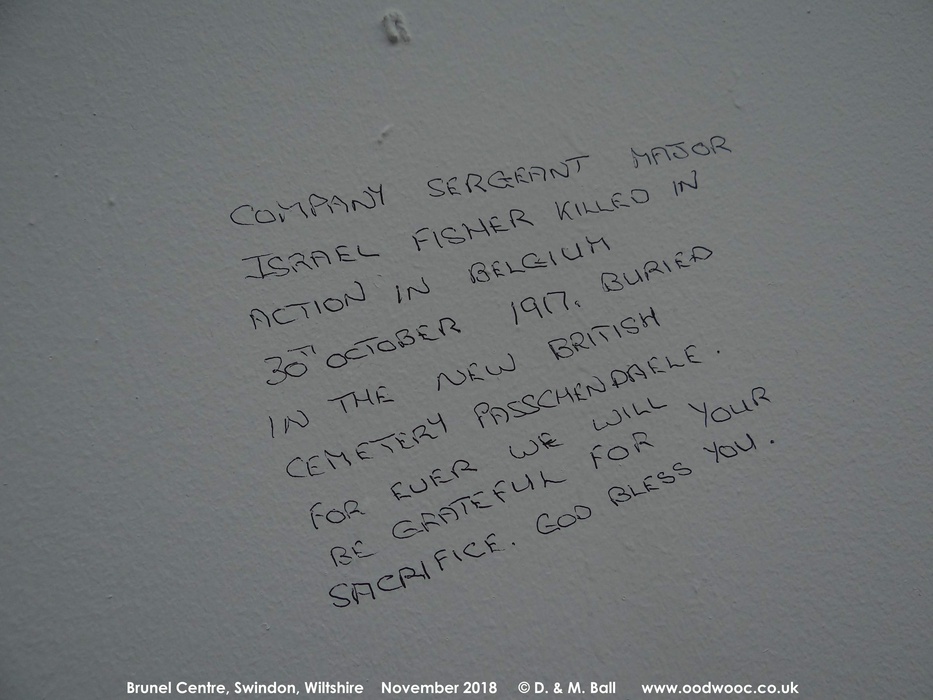 COMPANY SERGEANT MAJOR
ISRAEL FISHER KILLED IN
ACTION IN BELGIUM
30TH OCTOBER 1917. BURIED
IN THE NEW BRITISH
CEMETERY PASSCHENDAELE.
FOR EVER WE WILL
BE GRATEFUL FOR YOUR
SACRIFICE. GOD BLESS YOU.
Brunel Centre, Swindon, Wiltshire November 2018 © D. & M. Ball www.oodwooc.co.uk